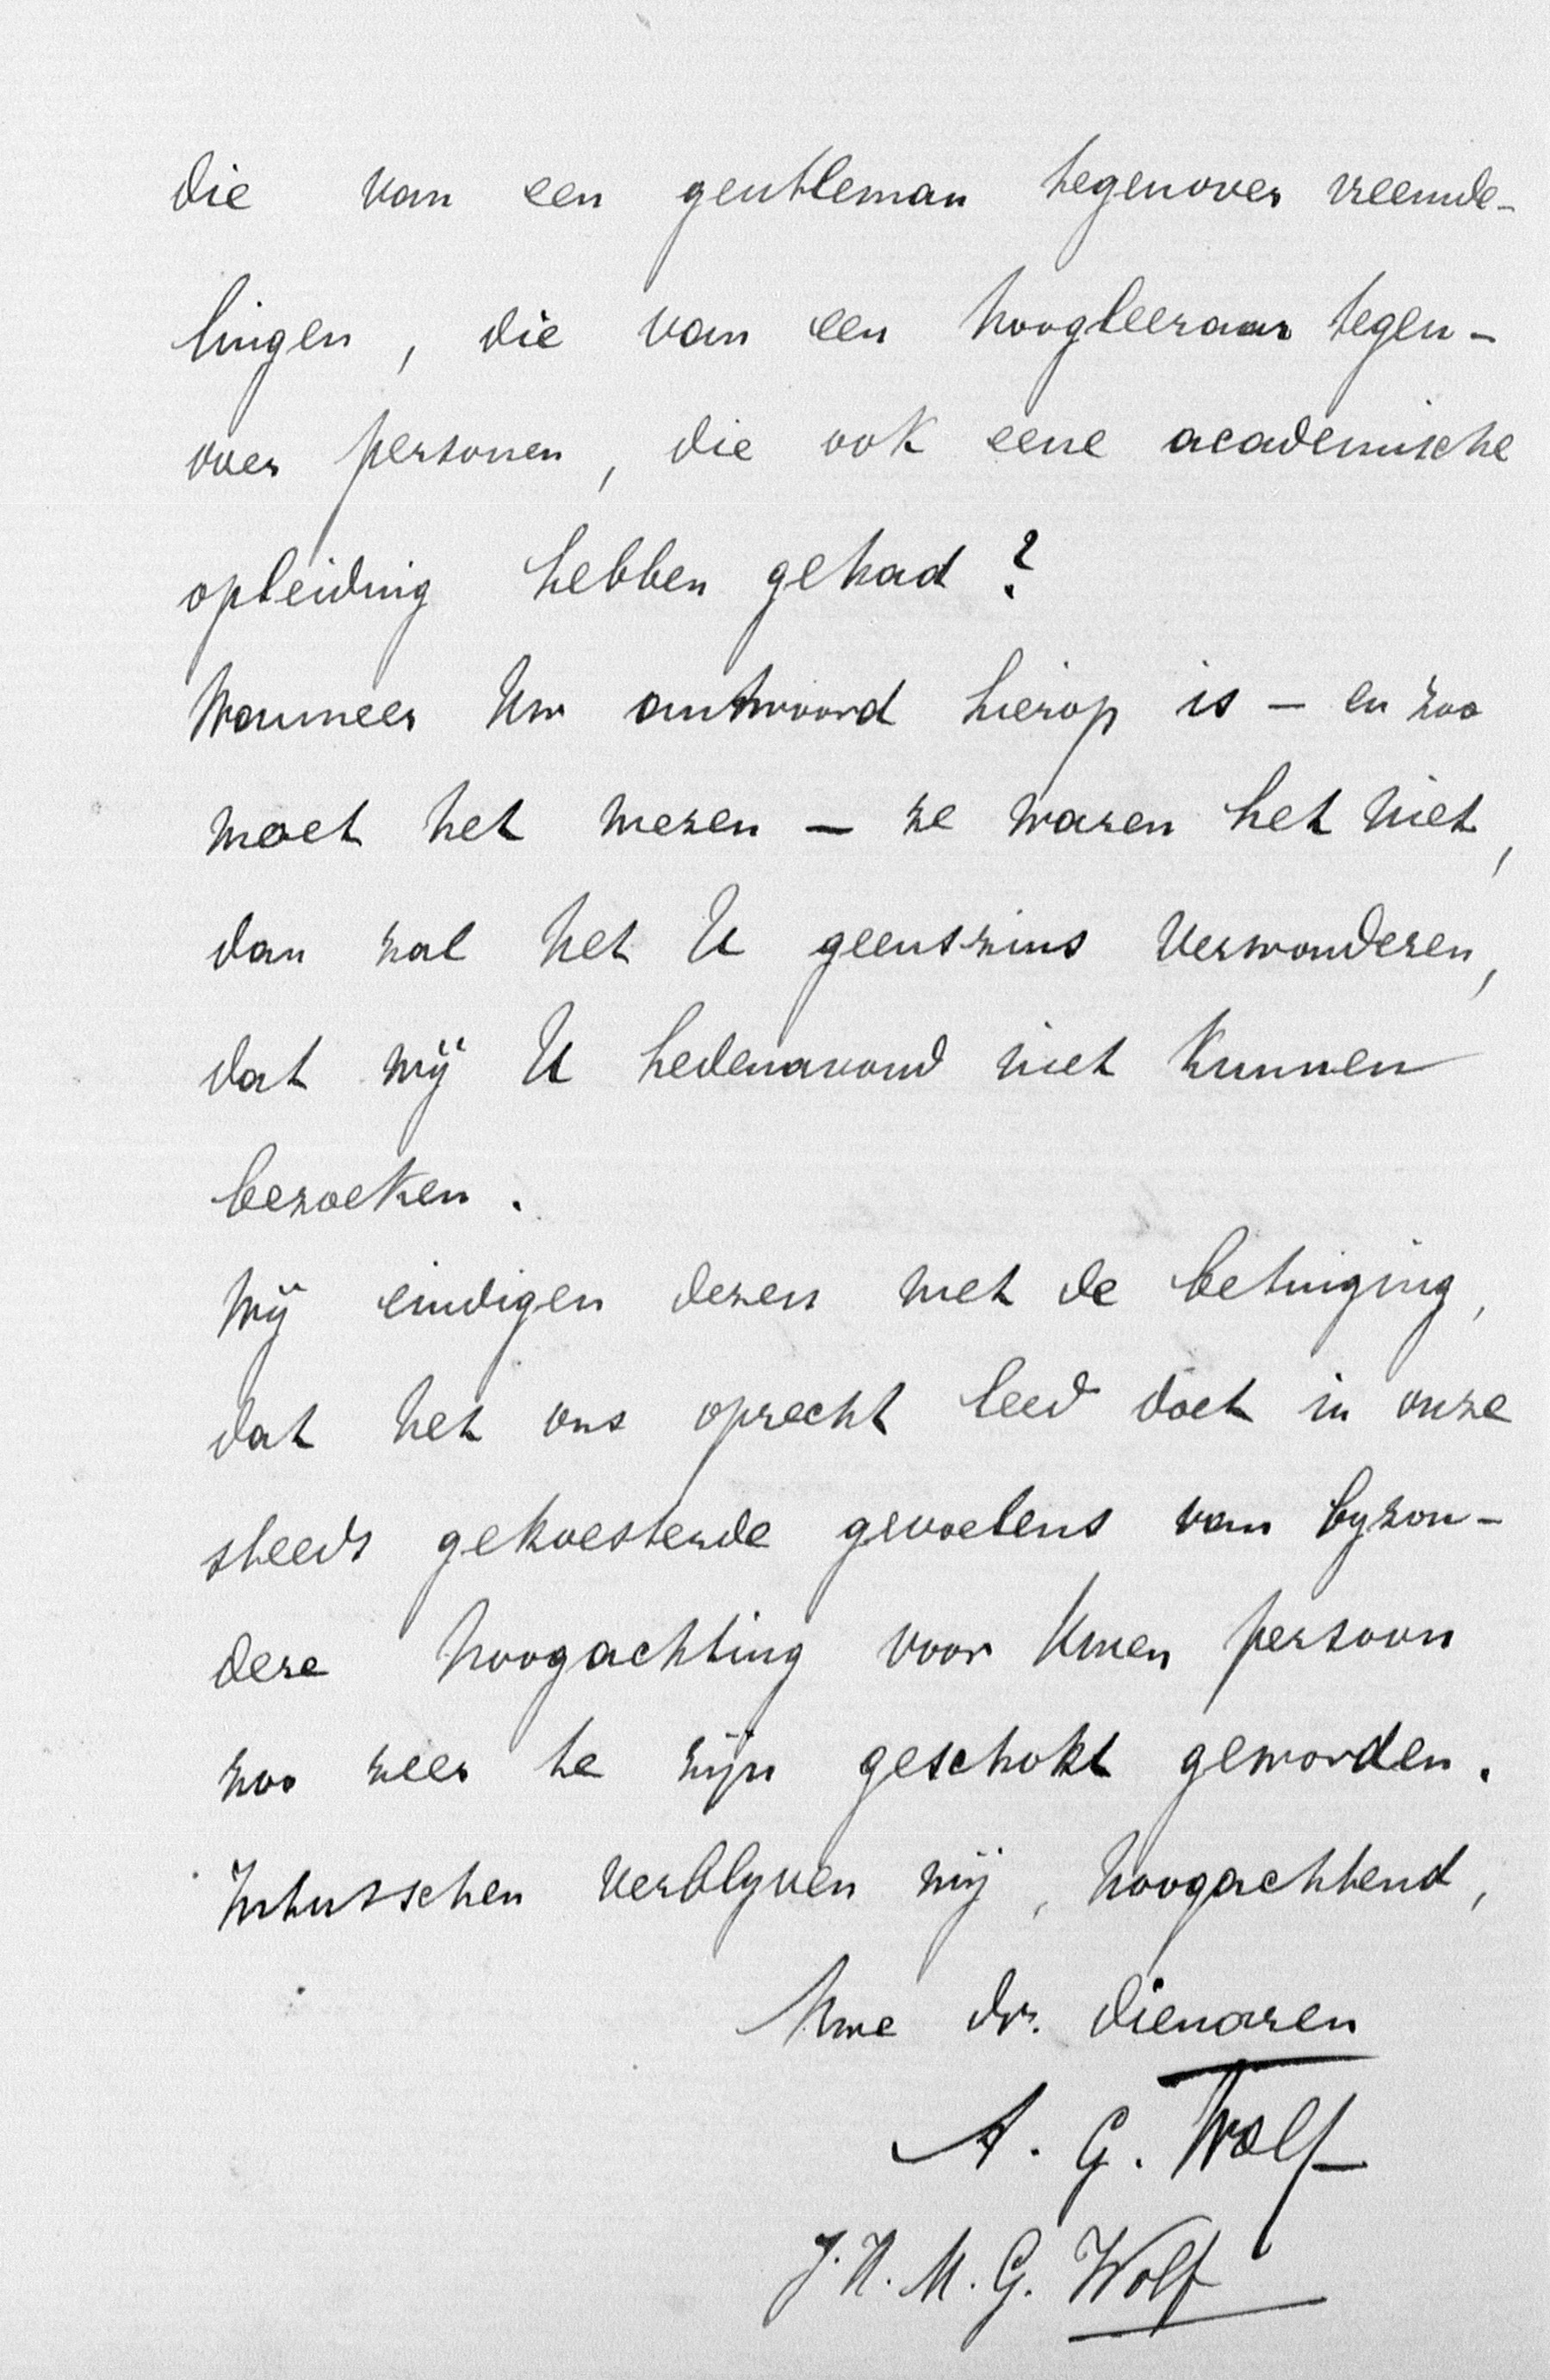 die van een gentleman tegenover vreemde-
lingen, die van een hoogleeraar tegen-
over personen, die ook eene academische
opleiding hebben gehad?
Wanneer Uw antwoord hierop is – en zoo
moet het wezen – ze waren het niet,
dan zal het U geenszins verwonderen,
dat wij U hedenavond niet kunnen
bezoeken.
Wij eindigen dezen met de betuiging,
dat het ons oprecht leed doet in onze
steeds gekoesterde gevoelens van byzon-
dere hoogachting voor Uwen persoon
zoo zeer te zijn geschokt geworden.
Intusschen verblyven wij, hoogachtend,
Uwe dr. dienaren
A. G. Wolf
J. H. M. G. Wolf